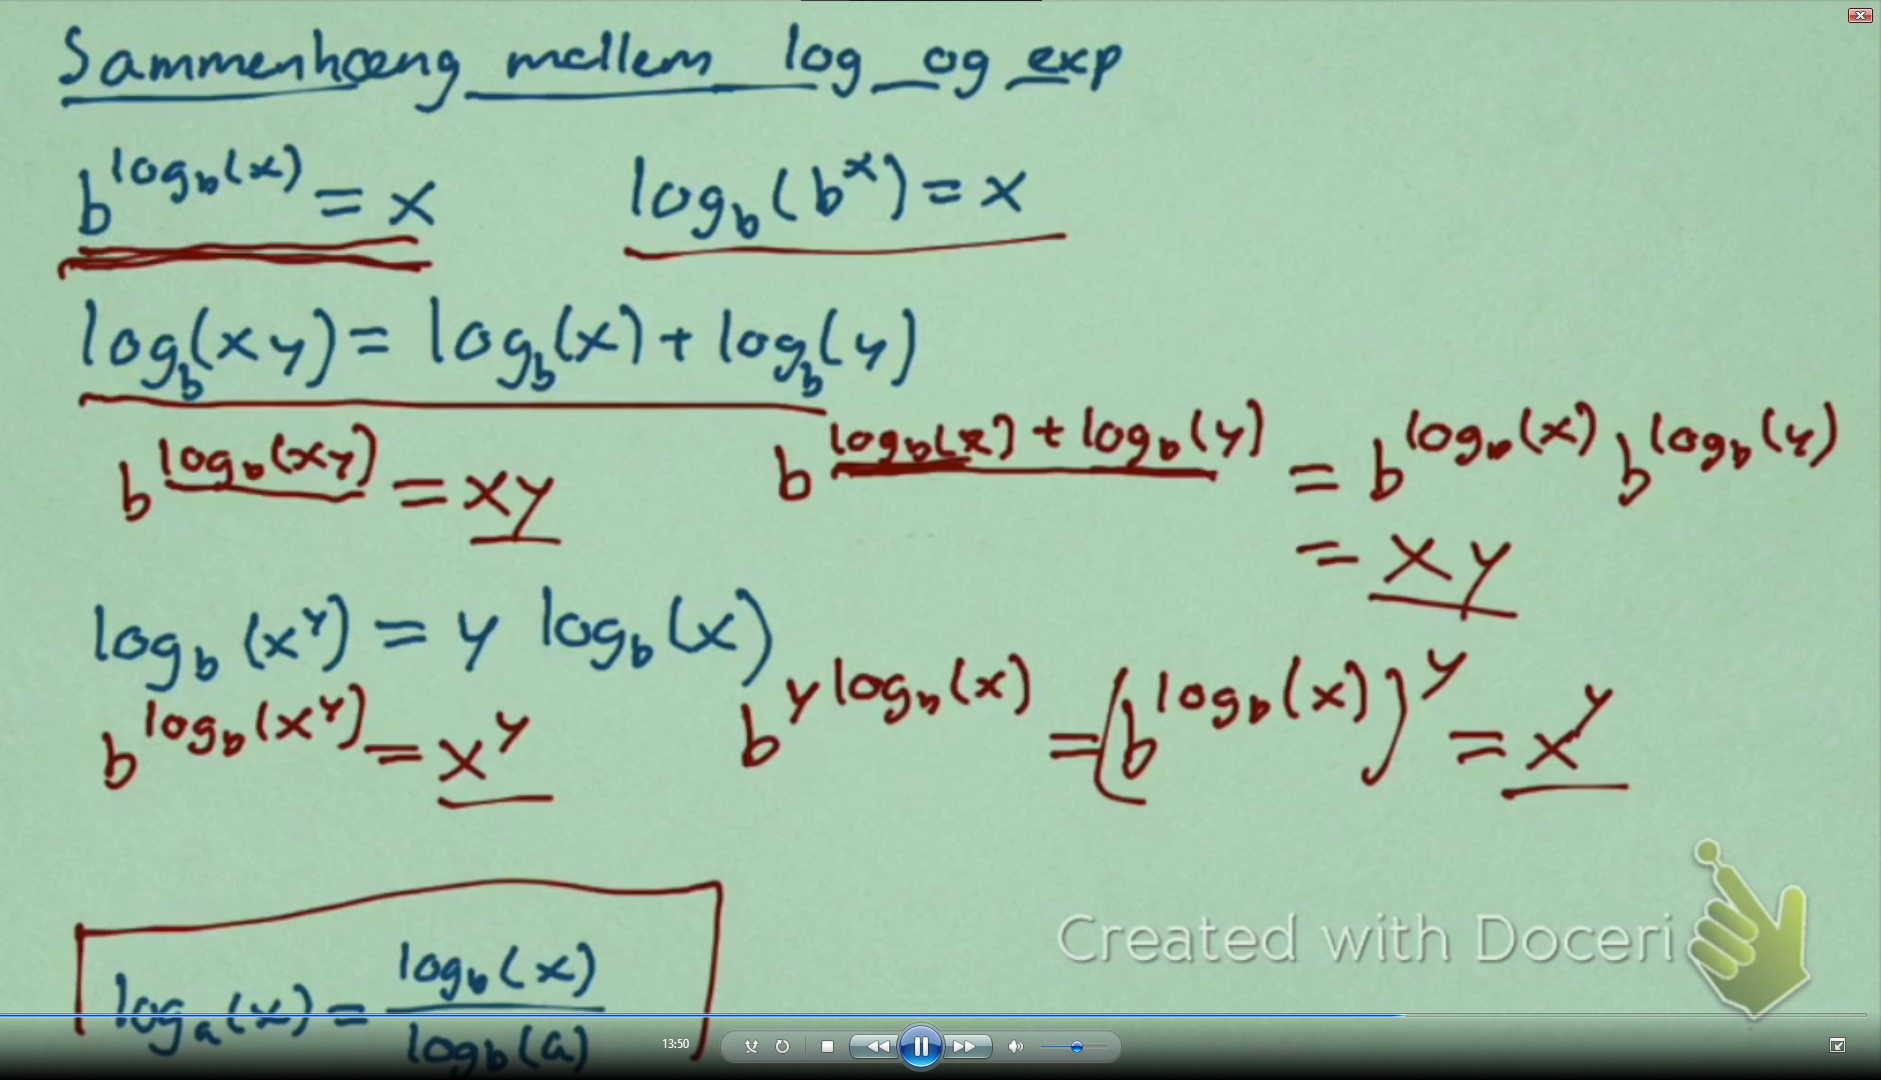 Sammenhæng mellem log og exp
b^{log_b(x)} = x    log_b(b^x) = x
log_b(xy) = log_b(x) + log_b(y)
b^{log_b(xy)} = xy    b^{log_b(x) + log_b(y)} = b^{log_b(x)} b^{log_b(y)}
= xy
log_b(x^y) = y log_b(x)
b^{log_b(x^y)} = x^y    b^{y log_b(x)} = (b^{log_b(x)})^y = x^y
Created with Doceri
log_a(x) = \frac{log_b(x)}{log_b(a)}
13:50